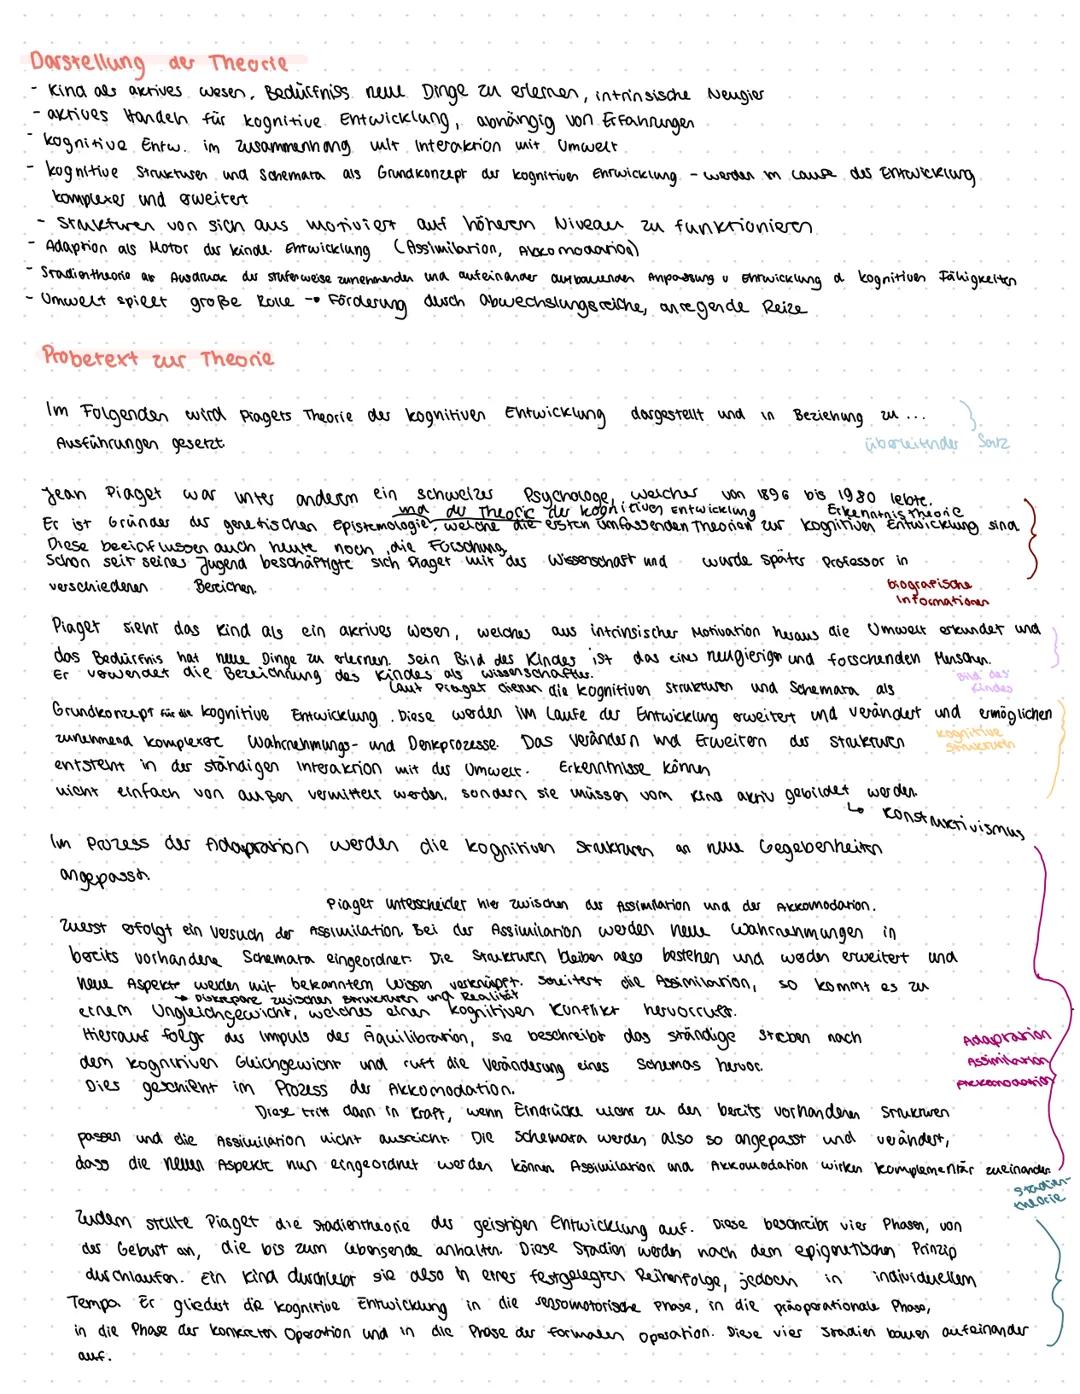 Darstellung der Theorie
- Kind als aktives Wesen, Bedürfniss neue Dinge zu erlernen, intrinsische Neugier
- aktives Handeln für kognitive Entwicklung, abhängig von Erfahrungen
- kognitive Entw. im Zusammenhang mit Interaktion mit Umwelt
- kognitive Strukturen und Schemata als Grundkonzept der kognitiven Entwicklung - werden im Laufe der Entwicklung
komplexer und erweitert
- Strukturen von sich aus motiviert auf höherem Niveau zu funktionieren
- Adaption als Motor der kindl. Entwicklung (Assimilation, Akkomodation)
- Stadientheorie als Ausdruck der stufenweise zunehmenden und aufeinander aufbauenden Anpassung u Entwicklung d kognitiven Fähigkeiten
- Umwelt spielt große Rolle → Förderung durch abwechslungsreiche, anregende Reize
Probetext zur Theorie
Im Folgenden wird Piagets Theorie der kognitiven Entwicklung dargestellt und in Beziehung zu ...
Ausführungen gesetzt
überleitender Satz
Jean Piaget war unter anderem ein schweizer Psychologe, welcher von 1896 bis 1980 lebte.
und der Theorie der kognitiven Entwicklung Erkenntnistheorie
Er ist Gründer der genetischen Epistemologie, welche die ersten umfassenden Theorien zur kognitiven Entwicklung sind
Diese beeinflussen auch heute noch die Forschung
Schon seit seiner Jugend beschäftigte sich Piaget mit der Wissenschaft und wurde später Professor in
verschiedenen Bereichen.
biografische
Informationen
Piaget sieht das Kind als ein aktives Wesen, welches aus intrinsischer Motivation heraus die Umwelt erkundet und
das Bedürfnis hat neue Dinge zu erlernen. Sein Bild des Kindes ist das eines neugierigen und forschenden Menschen.
Er verwendet die Bezeichnung des Kindes als Wissenschaftler.
Bild des
Kindes
Laut Piaget dienen die kognitiven Strukturen und Schemata als
Grundkonzept für die kognitive Entwicklung. Diese werden im Laufe der Entwicklung erweitert und verändert und ermöglichen
zunehmend komplexere Wahrnehmungs- und Denkprozesse. Das Verändern und Erweitern der Strukturen
kognitive
Strukturen
entsteht in der ständigen Interaktion mit der Umwelt. Erkenntnisse können
nicht einfach von außen vermittelt werden, sondern sie müssen vom Kind aktiv gebildet werden.
↳ Konstruktivismus
Im Prozess der Adaptation werden die kognitiven Strukturen an neue Gegebenheiten
angepasst.
Piaget unterscheidet hier zwischen der Assimilation und der Akkomodation.
Zuerst erfolgt ein Versuch der Assimilation. Bei der Assimilation werden neue Wahrnehmungen in
bereits vorhandene Schemata eingeordnet. Die Strukturen bleiben also bestehen und werden erweitert und
neue Aspekte werden mit bekanntem Wissen verknüpft. Scheitert die Assimilation, so kommt es zu
→ Diskrepanz zwischen Strukturen und Realität
einem Ungleichgewicht, welches einen kognitiven Konflikt hervorruft.
Hierauf folgt der Impuls der Äquilibration, sie beschreibt das ständige Streben nach
dem kognitiven Gleichgewicht und ruft die Veränderung eines Schemas hervor.
Dies geschieht im Prozess der Akkomodation.
Adaptation
Assimilation
Akkomodation
Diese tritt dann in Kraft, wenn Eindrücke nicht zu den bereits vorhandenen Strukturen
passen und die Assimilation nicht ausreicht. Die Schemata werden also so angepasst und verändert,
dass die neuen Aspekte nun eingeordnet werden können. Assimilation und Akkomodation wirken komplementär zueinander
Stadien-
theorie
Zudem stellte Piaget die Stadientheorie der geistigen Entwicklung auf. Diese beschreibt vier Phasen, von
der Geburt an, die bis zum Lebensende anhalten. Diese Stadien werden nach dem epigenetischen Prinzip
durchlaufen. Ein Kind durchlebt sie also in einer festgelegten Reihenfolge, jedoch in individuellem
Tempo. Er gliedert die kognitive Entwicklung in die sensomotorische Phase, in die präoperationale Phase,
in die Phase der konkreten Operation und in die Phase der formalen Operation. Diese vier Stadien bauen aufeinander
auf.